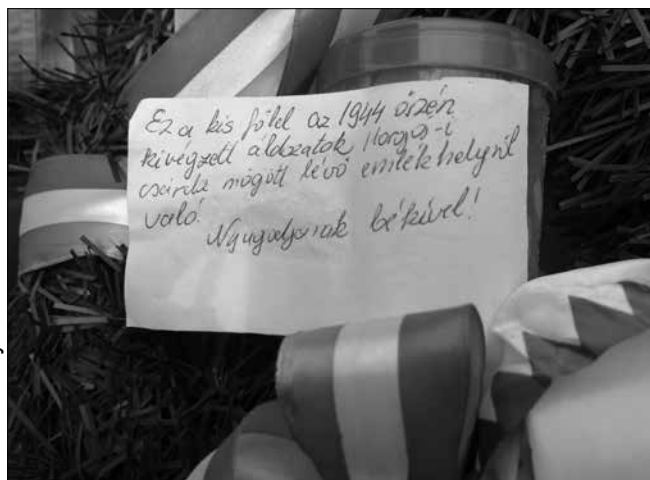 Ez a kis föld az 1944 őszén
kivégzett áldozatok Horgos-i
csárda mögött lévő emlékhelyről
való!
Nyugodjanak békével!